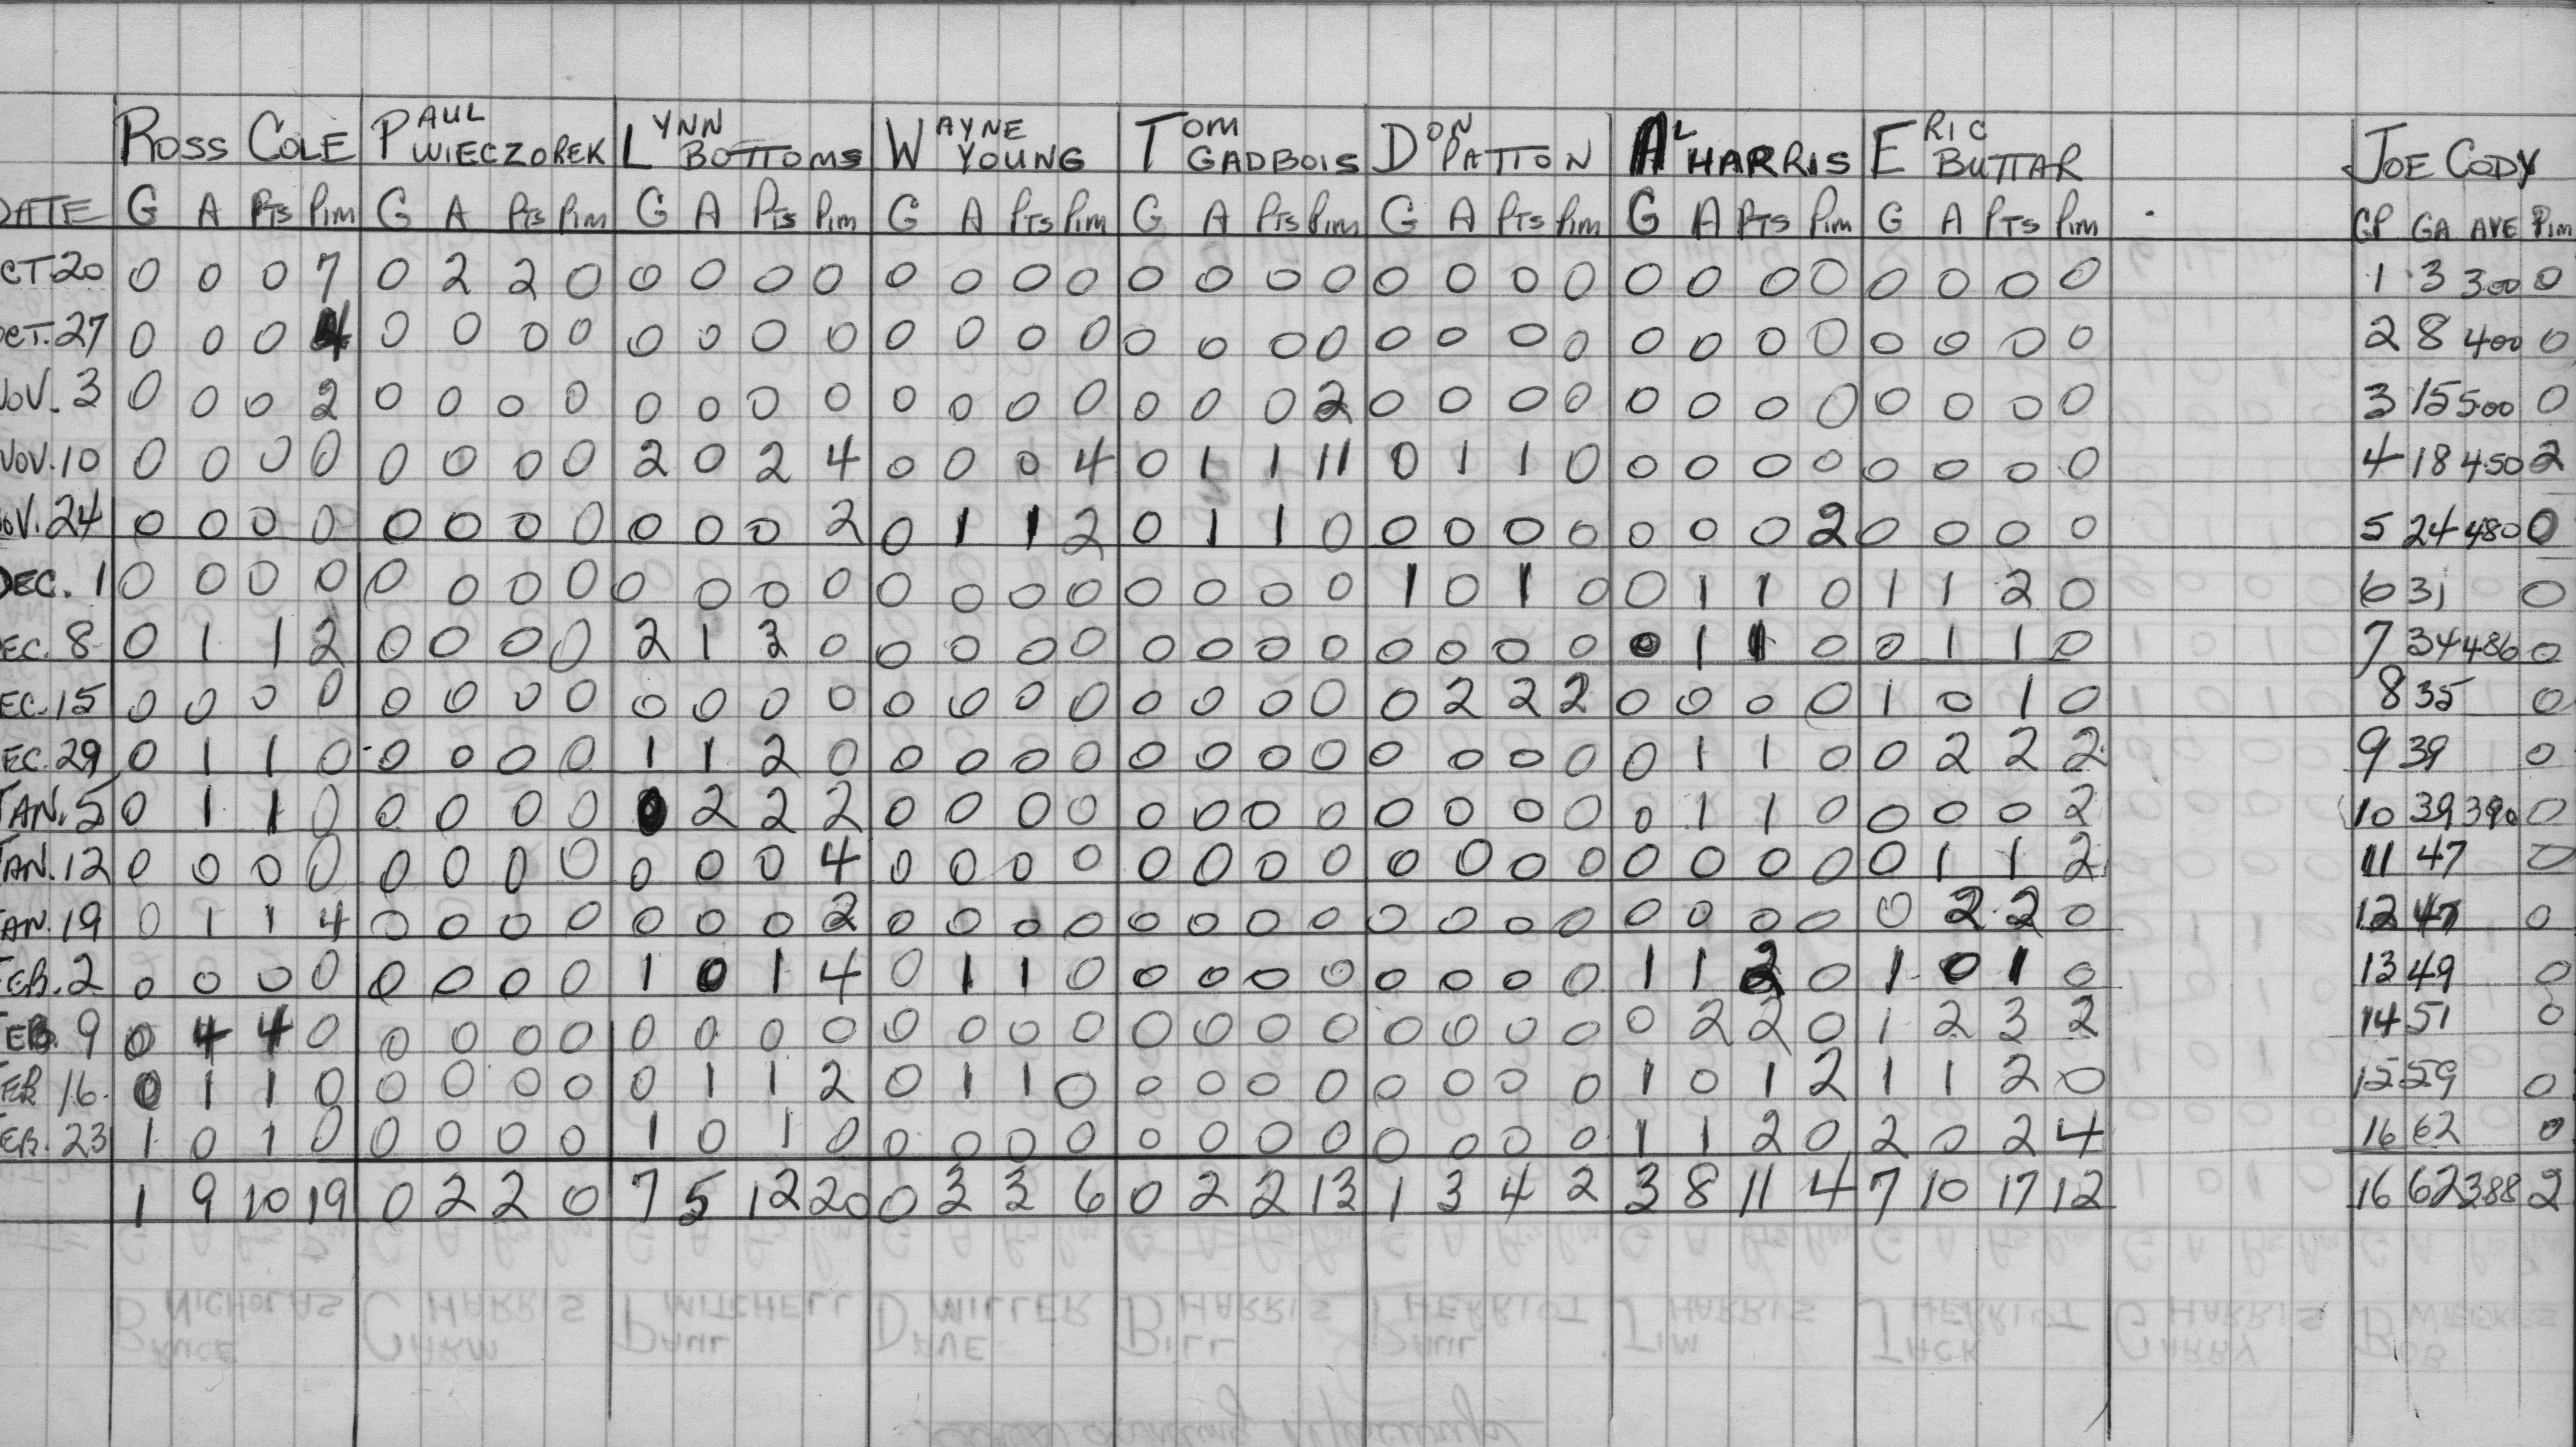 ROSS COLE PAUL WIECZOREK LYNN BOTTOMS WAYNE YOUNG TOM GADBOIS DON PATTON AL HARRIS ERIC BUTTAR JOE CODY
DATE G A PTS PIM G A PTS PIM G A PTS PIM G A PTS PIM G A PTS PIM G A PTS PIM G A PTS PIM G A PTS PIM GP GA AVE PIM
CT 20 0 0 0 7 0 2 2 0 0 0 0 0 0 0 0 0 0 0 0 0 0 0 0 0 0 0 0 0 0 0 0 0 1 3 300 0
CT. 27 0 0 0 4 0 0 0 0 0 0 0 0 0 0 0 0 0 0 0 0 0 0 0 0 0 0 0 0 0 0 0 0 2 8 400 0
NOV. 3 0 0 0 2 0 0 0 0 0 0 0 0 0 0 0 0 0 0 0 2 0 0 0 0 0 0 0 0 0 0 0 0 3 15 500 0
NOV. 10 0 0 0 0 0 0 0 0 2 0 2 4 0 0 0 4 0 1 1 11 0 1 1 0 0 0 0 0 0 0 0 0 4 18 450 2
OV. 24 0 0 0 0 0 0 0 0 0 0 0 2 0 1 1 2 0 1 1 0 0 0 0 0 0 0 0 2 0 0 0 0 5 24 480 0
DEC. 1 0 0 0 0 0 0 0 0 0 0 0 0 0 0 0 0 0 0 0 0 1 0 1 0 0 1 1 0 1 1 2 0 6 31 0
EC. 8 0 1 1 2 0 0 0 0 2 1 3 0 0 0 0 0 0 0 0 0 0 0 0 0 0 1 1 0 0 1 1 0 7 34 486 0
EC. 15 0 0 0 0 0 0 0 0 0 0 0 0 0 0 0 0 0 0 0 0 0 2 2 2 0 0 0 0 1 0 1 0 8 35 0
EC. 29 0 1 1 0 0 0 0 0 1 1 2 0 0 0 0 0 0 0 0 0 0 0 0 0 0 1 1 0 0 2 2 2 9 39 0
JAN. 5 0 1 1 0 0 0 0 0 0 2 2 2 0 0 0 0 0 0 0 0 0 0 0 0 0 1 1 0 0 0 0 2 10 39 390 0
JAN. 12 0 0 0 0 0 0 0 0 0 0 0 4 0 0 0 0 0 0 0 0 0 0 0 0 0 0 0 0 0 1 1 2 11 47 0
AN. 19 0 1 1 4 0 0 0 0 0 0 0 2 0 0 0 0 0 0 0 0 0 0 0 0 0 0 0 0 0 2 2 0 12 47 0
EB. 2 0 0 0 0 0 0 0 0 1 0 1 4 0 1 1 0 0 0 0 0 0 0 0 0 1 1 2 0 1 0 1 0 13 49 0
EB. 9 0 4 4 0 0 0 0 0 0 0 0 0 0 0 0 0 0 0 0 0 0 0 0 0 0 2 2 0 1 2 3 2 14 51 0
EB 16 0 1 1 0 0 0 0 0 0 1 1 2 0 1 1 0 0 0 0 0 0 0 0 0 1 0 1 2 1 1 2 0 15 59 0
EB. 23 1 0 1 0 0 0 0 0 1 0 1 0 0 0 0 0 0 0 0 0 0 0 0 0 1 1 2 0 2 0 2 4 16 62 0
1 9 10 19 0 2 2 0 7 5 12 20 0 3 3 6 0 2 2 13 1 3 4 2 3 8 11 4 7 10 17 12 16 62 388 2